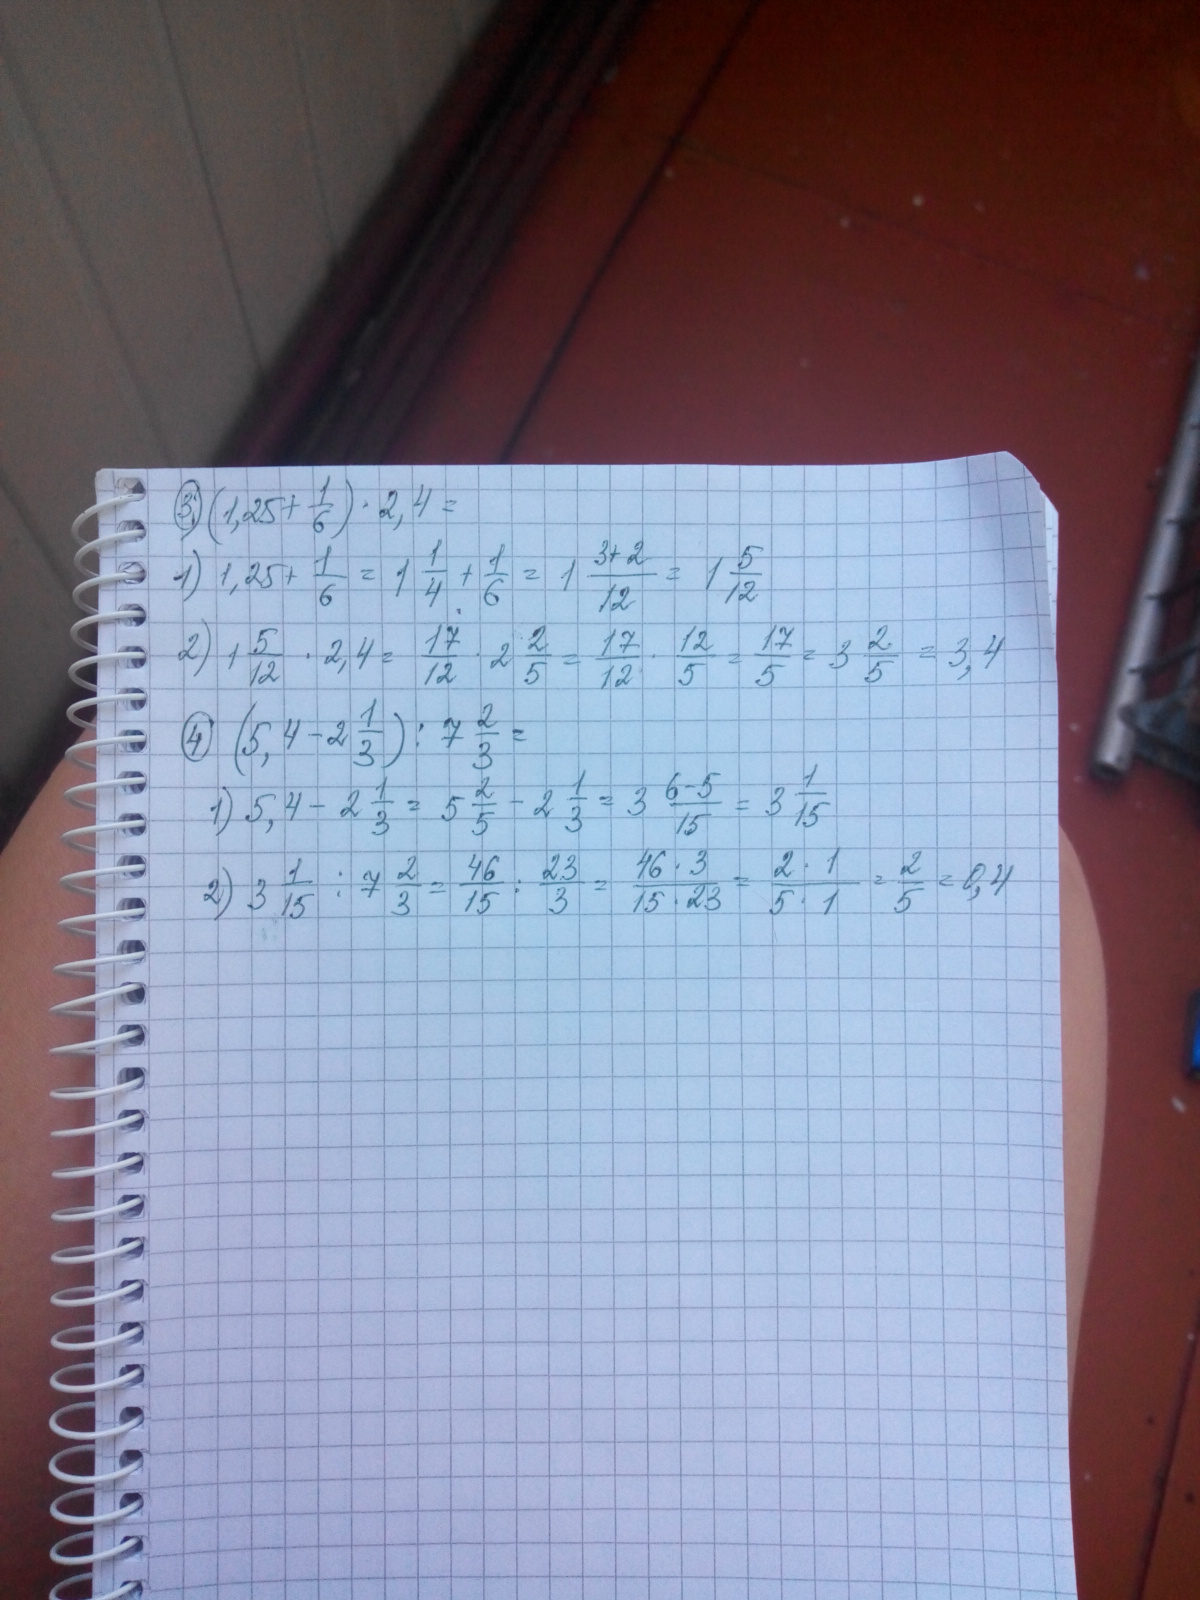 ③ (1,25 + 1/6) · 2,4 =
1) 1,25 + 1/6 = 1 1/4 + 1/6 = 1 (3+2)/12 = 1 5/12
2) 1 5/12 · 2,4 = 17/12 · 2 2/5 = 17/12 · 12/5 = 17/5 = 3 2/5 = 3,4
④ (5,4 - 2 1/3) : 7 2/3 =
1) 5,4 - 2 1/3 = 5 2/5 - 2 1/3 = 3 (6-5)/15 = 3 1/15
2) 3 1/15 : 7 2/3 = 46/15 : 23/3 = (46 · 3)/(15 · 23) = (2 · 1)/(5 · 1) = 2/5 = 0,4